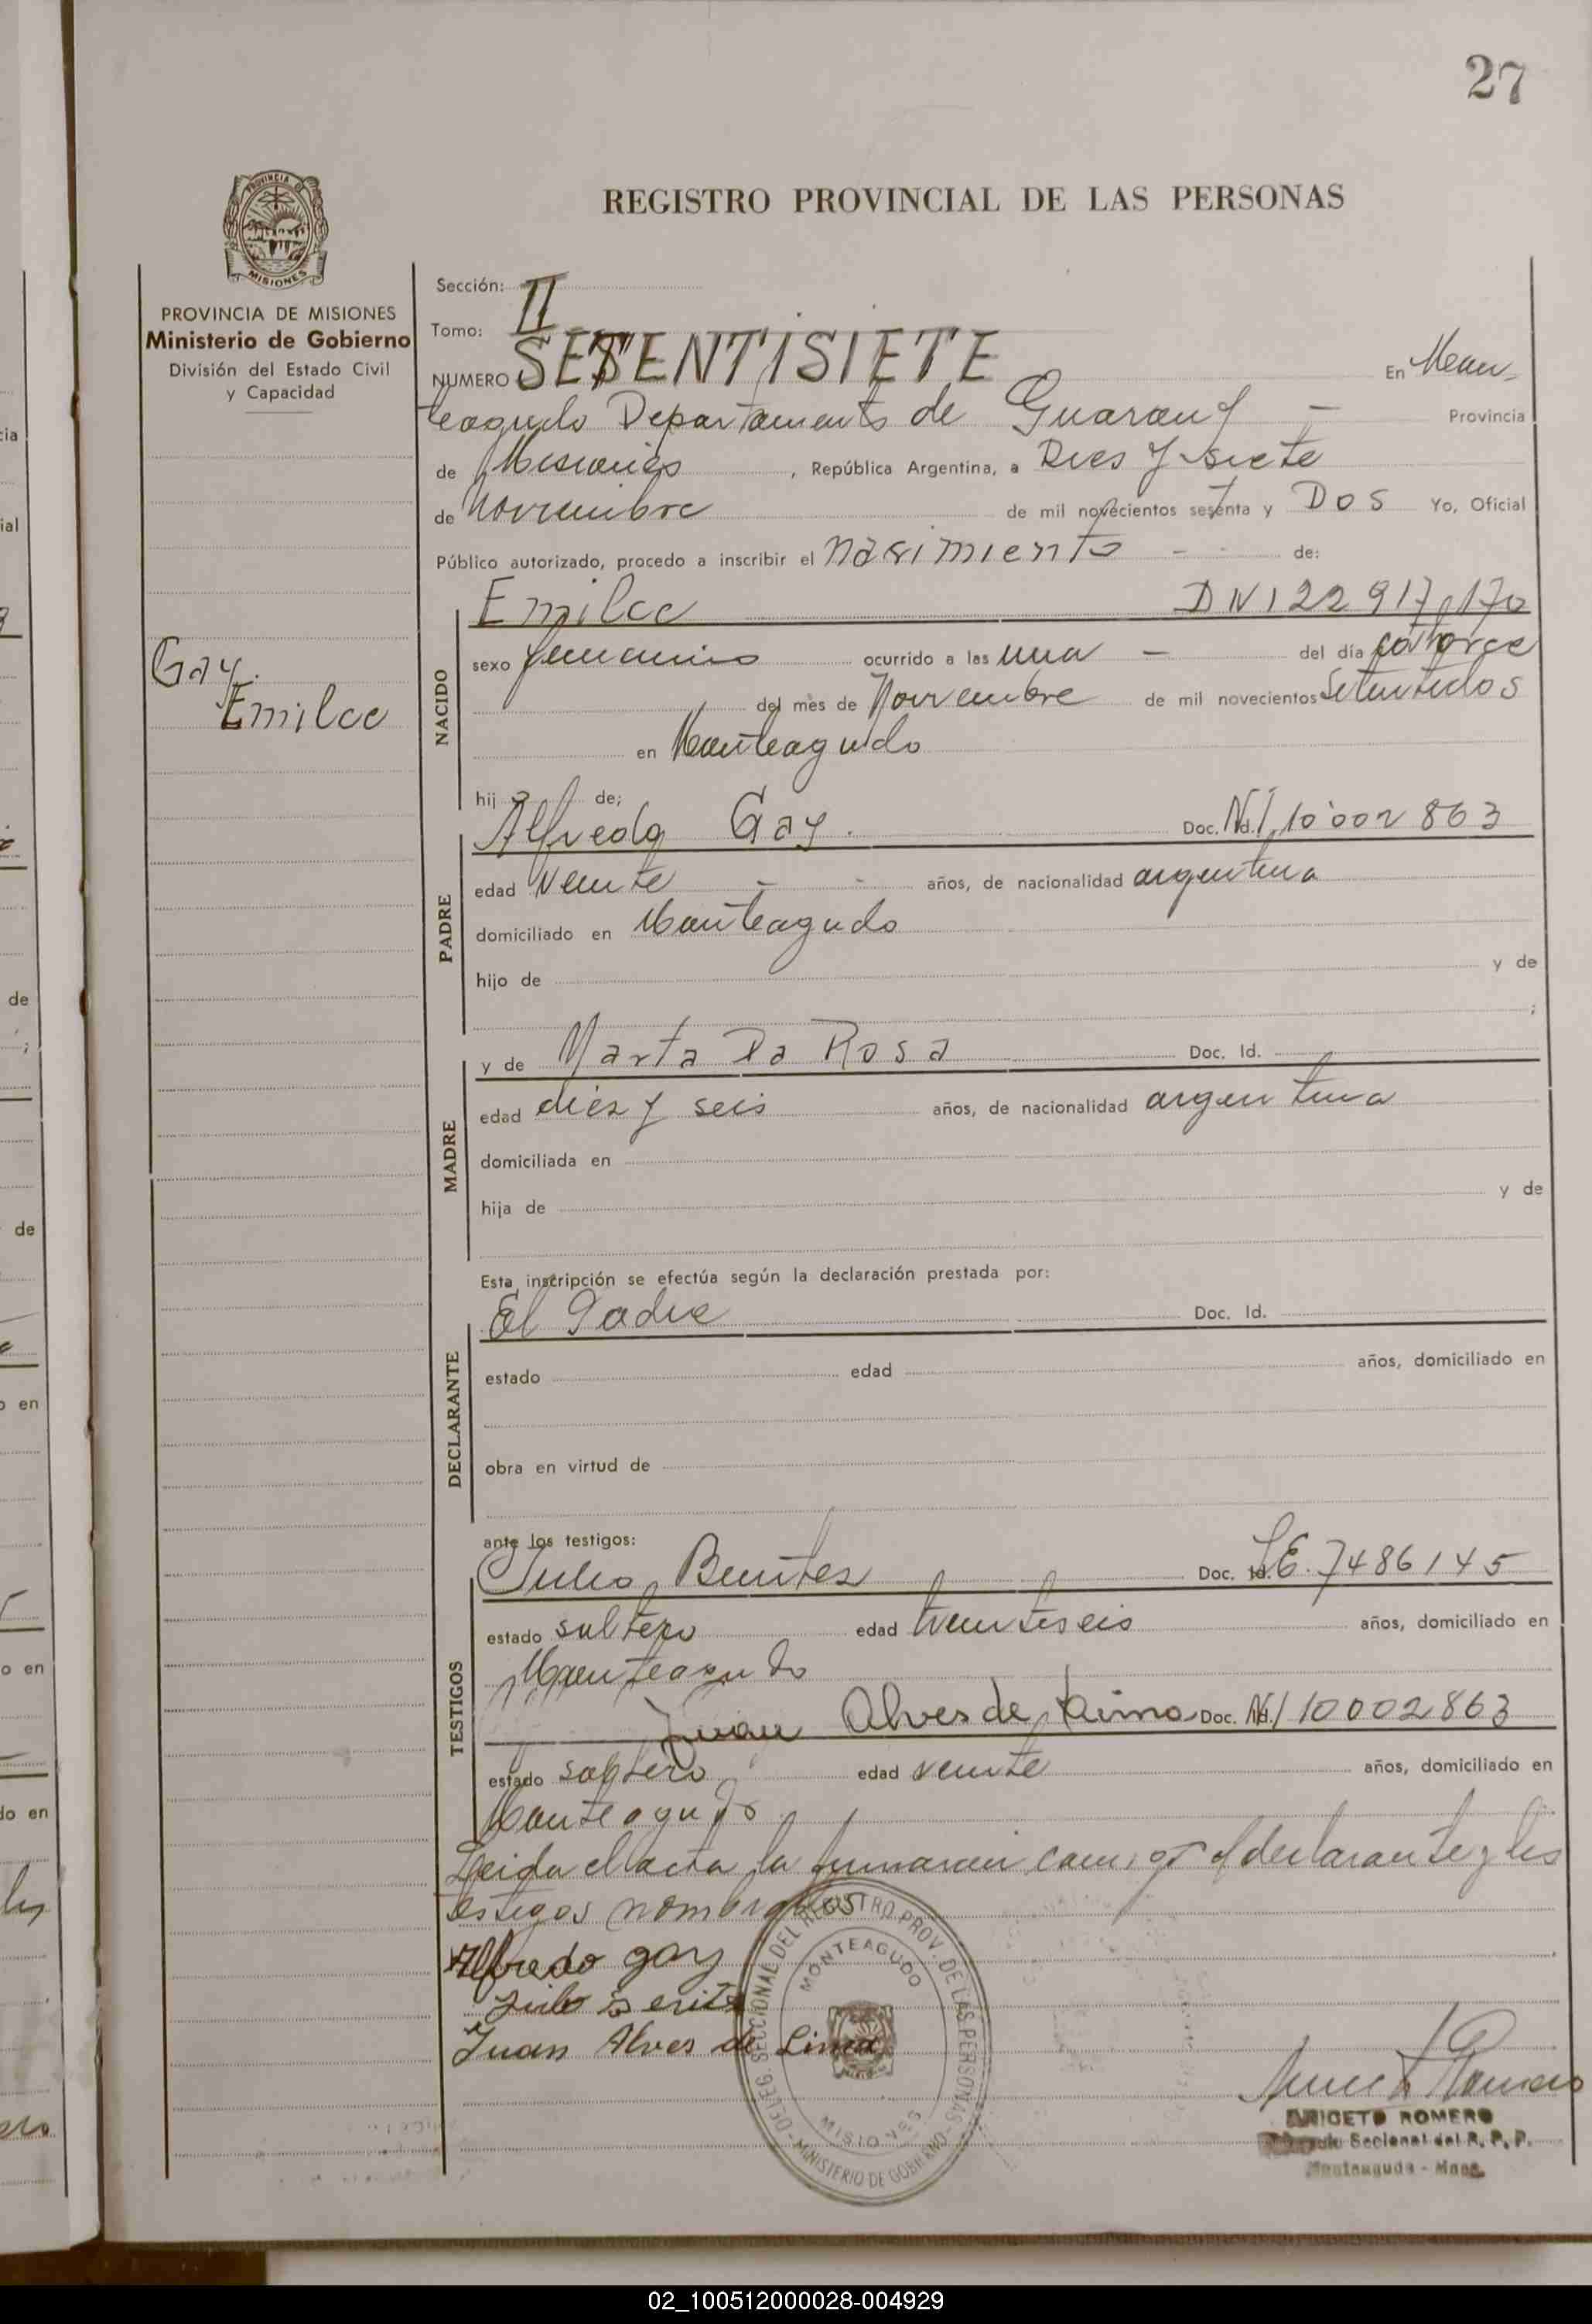 27
REGISTRO PROVINCIAL DE LAS PERSONAS
PROVINCIA DE MISIONES
MISIONES
PROVINCIA DE MISIONES
Ministerio de Gobierno
División del Estado Civil
y Capacidad
Sección:
Tomo: II
NUMERO SETENTISIETE En Mon-
teagudo Departamento de Guarany - Provincia
de Misiones, República Argentina, a Dies y siete
de Noviembre de mil novecientos setenta y DOS Yo, Oficial
Público autorizado, procedo a inscribir el nasimiento - - de:
Emilce DNI 22 917,170
Gay.
Emilce
NACIDO
sexo femenino ocurrido a las una - del día catorce
del mes de Noviembre de mil novecientos setentidos
en Monteagudo
hija de;
PADRE
Alfredo Gay. Doc. Id. N.I. 10.002 863
edad veinte - - años, de nacionalidad argentina
domiciliado en Monteagudo
hijo de y de
;
MADRE
y de Marta Da Rosa Doc. Id.
edad diez y seis años, de nacionalidad argentina
domiciliada en
hija de y de
Esta inscripción se efectúa según la declaración prestada por:
DECLARANTE
El Padre Doc. Id.
estado edad años, domiciliado en
obra en virtud de
ante los testigos:
TESTIGOS
Julio Benites Doc. Id. L.E. 7486145
estado soltero edad treintiseis años, domiciliado en
Monteagudo
Juan Alves de Lima Doc. Id. N.I 10002863
estado soltero edad veinte años, domiciliado en
Monteagudo
Leida el acta la firmaron conmigo el declarante y los
testigos nombrados
Alfredo gay
Julio Benites
Juan Alves de Lima
DELEG. SECCIONAL DEL REGISTRO PROV. DE LAS PERSONAS - MINISTERIO DE GOBIERNO -
MONTEAGUDO
MISIONES
ANICETO ROMERO
Seccional del R. P. P.
Monteagudo - Mnes.
02_100512000028-004929